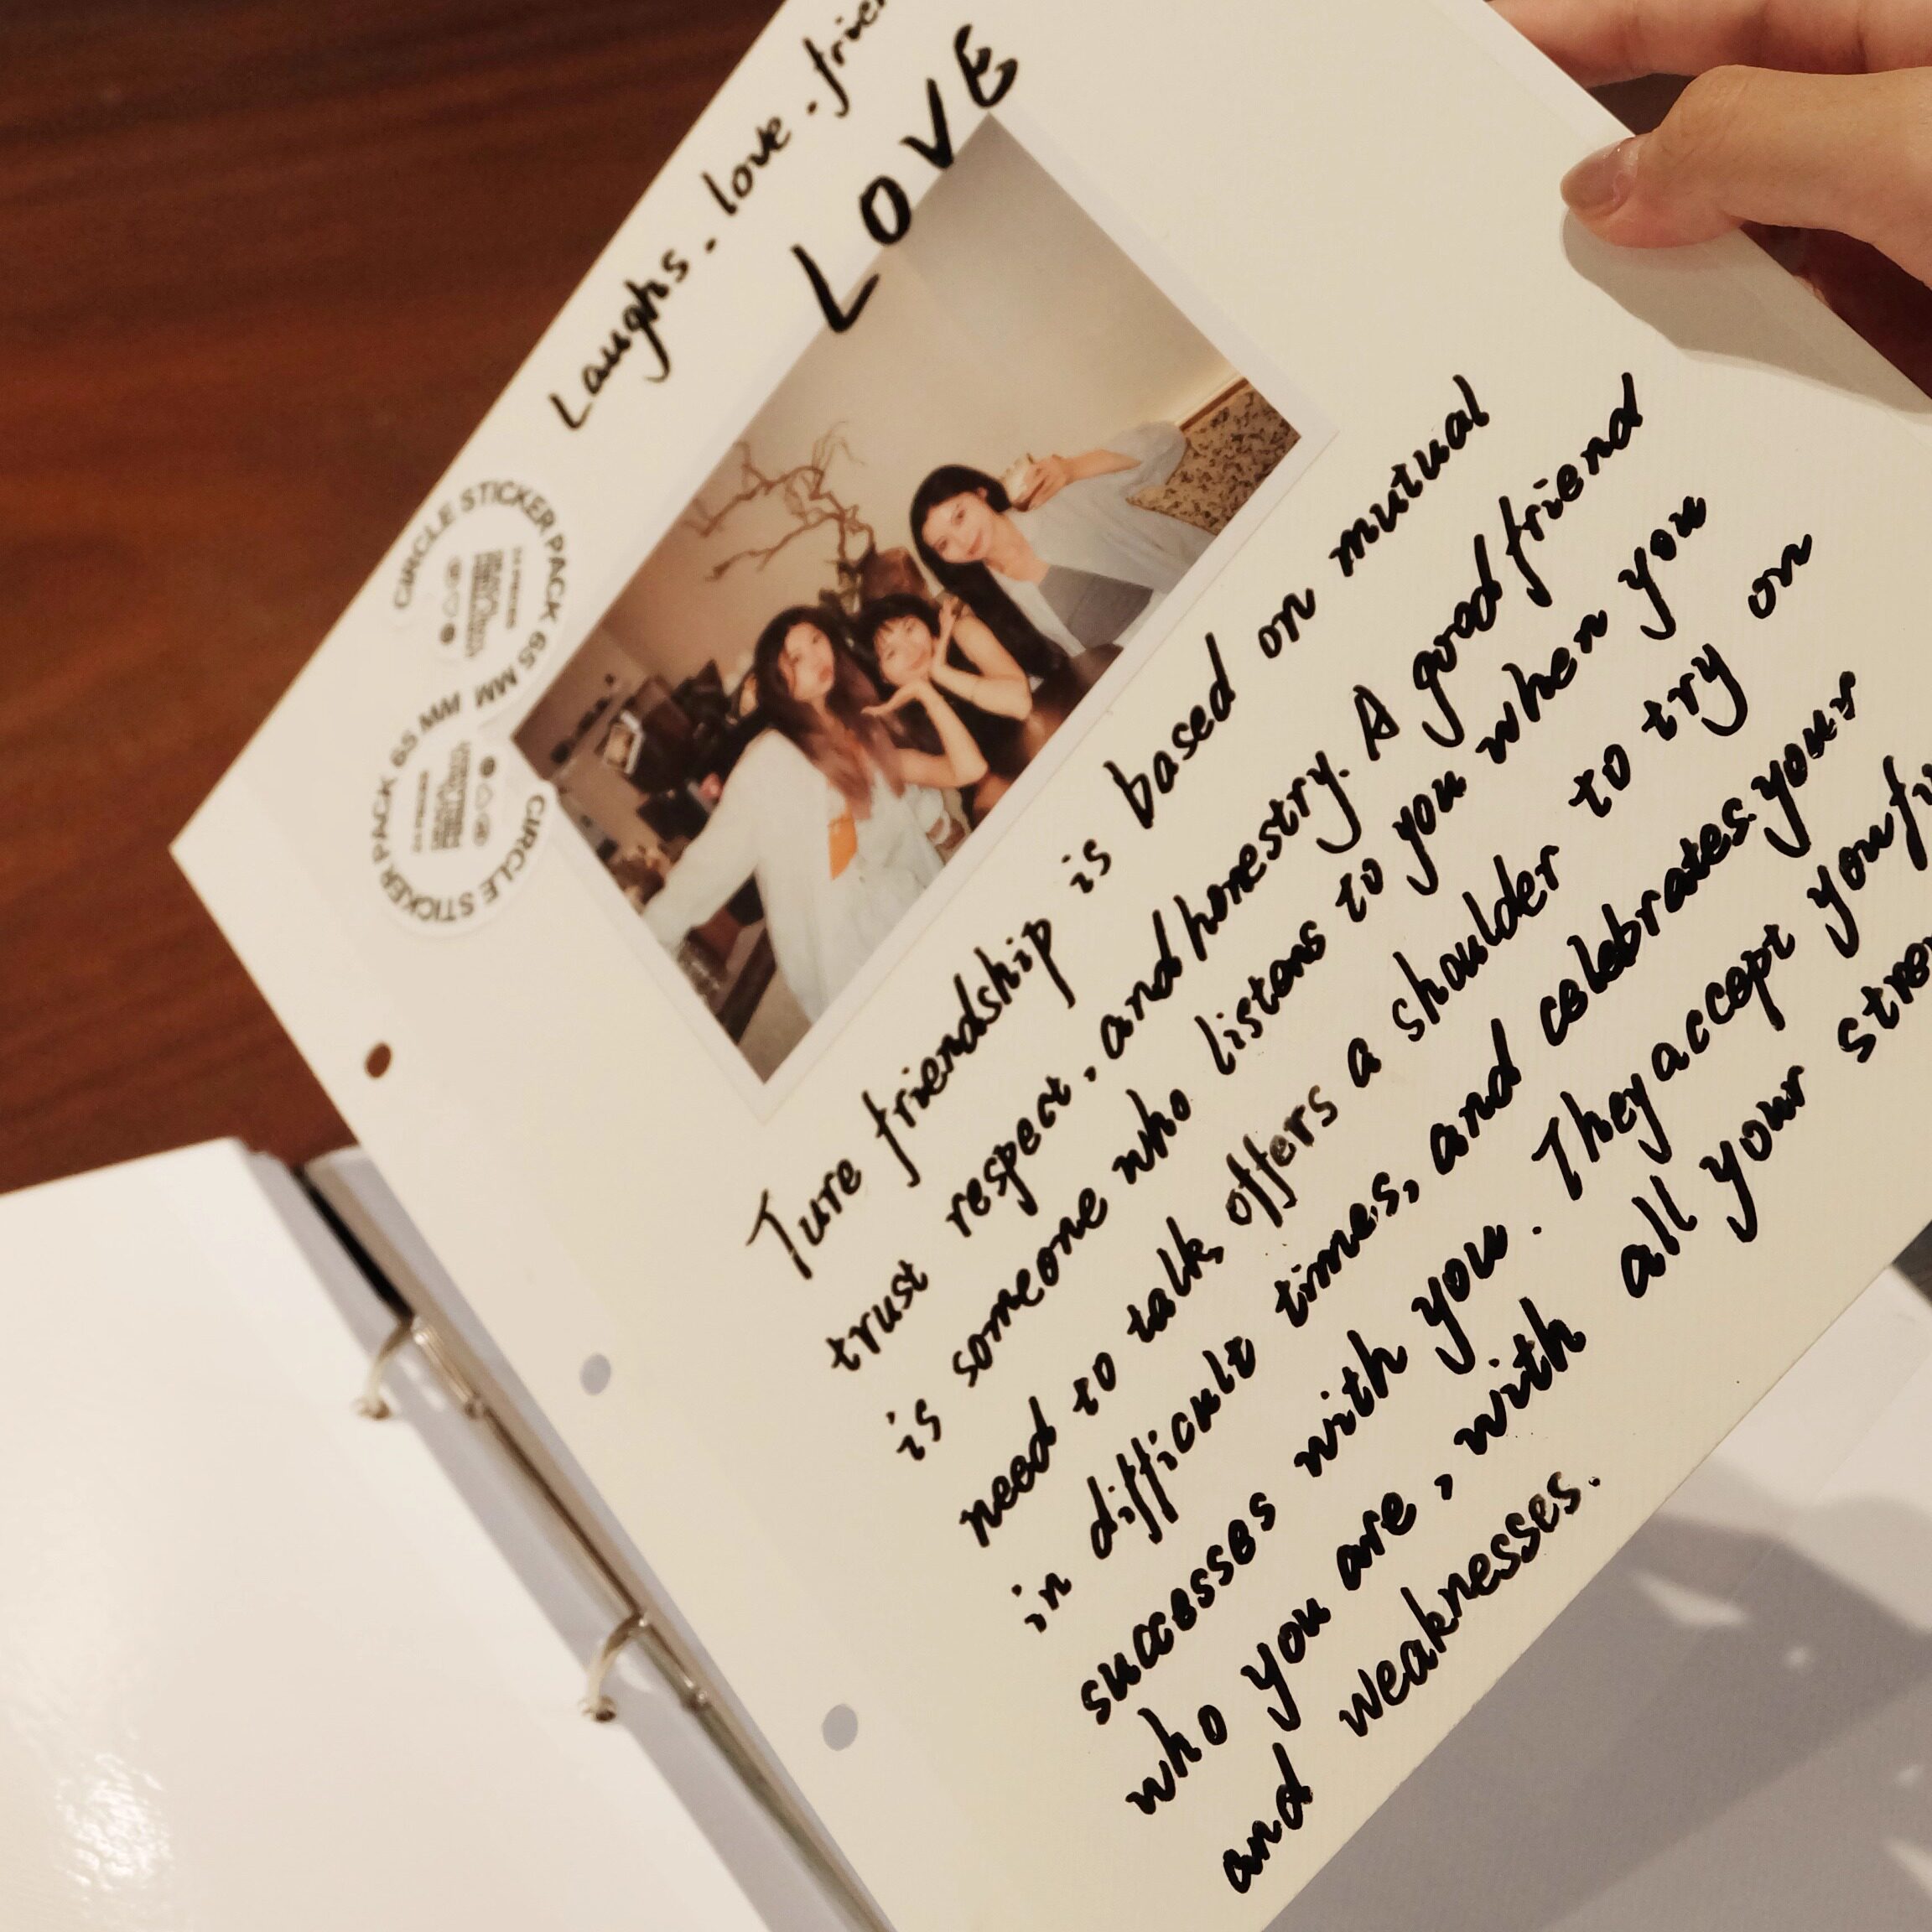 Laughs . love . frien
LOVE
CIRCLE STICKER PACK 65 MM
CIRCLE STICKER PACK 65 MM
Ture friendship is based on mutual
trust respect, and honestry. A good friend
is someone who listens to you when you
need to talk, offers a shoulder to try on
in difficult times, and celebrates your
successes with you. They accept you f
who you are, with all your stren
and weaknesses.